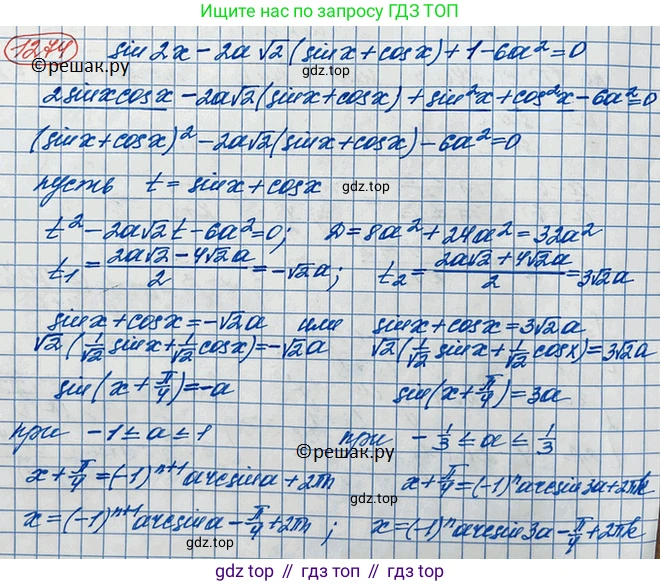 Ищите нас по запросу ГДЗ ТОП
1274 sin 2x - 2a√2 (sinx + cosx) + 1 - 6a² = 0
©reшak.ру gdz.top
2sinxcosx - 2a√2(sinx+cosx) + sin²x + cos²x - 6a² = 0
(sinx+cosx)² - 2a√2(sinx+cosx) - 6a² = 0
пусть t = sinx + cosx
gdz.top
t² - 2a√2t - 6a² = 0; D = 8a² + 24a² = 32a²
t₁ = (2a√2 - 4√2a)/2 = -√2a; t₂ = (2a√2 + 4√2a)/2 = 3√2a
gdz.top
sinx + cosx = -√2a или sinx + cosx = 3√2a
√2(1/√2 sinx + 1/√2 cosx) = -√2a √2(1/√2 sinx + 1/√2 cosx) = 3√2a
sin(x + π/4) = -a sin(x + π/4) = 3a
gdz.top
при -1 ≤ a ≤ 1 при -1/3 ≤ a ≤ 1/3
©reшak.ру
x + π/4 = (-1)ⁿ⁺¹ arcsin a + 2πn x + π/4 = (-1)ⁿ arcsin 3a + 2πk
x = (-1)ⁿ⁺¹ arcsin a - π/4 + 2πn; x = (-1)ⁿ arcsin 3a - π/4 + 2πk
gdz.top
gdz.top // гдз.top // gdz.top